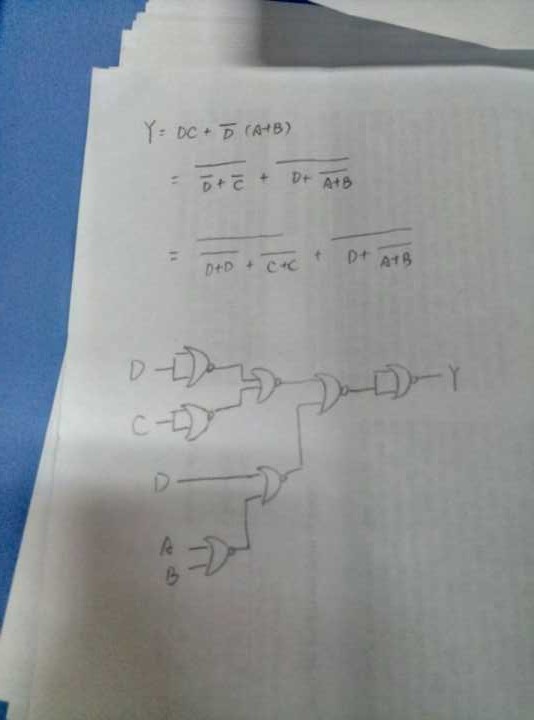 Y = DC + D̅ (A+B)
= \overline{\overline{D} + \overline{C}} + \overline{D + \overline{A+B}}
= \overline{\overline{D+D} + \overline{C+C}} + \overline{D + \overline{A+B}}
D
C
Y
D
A
B